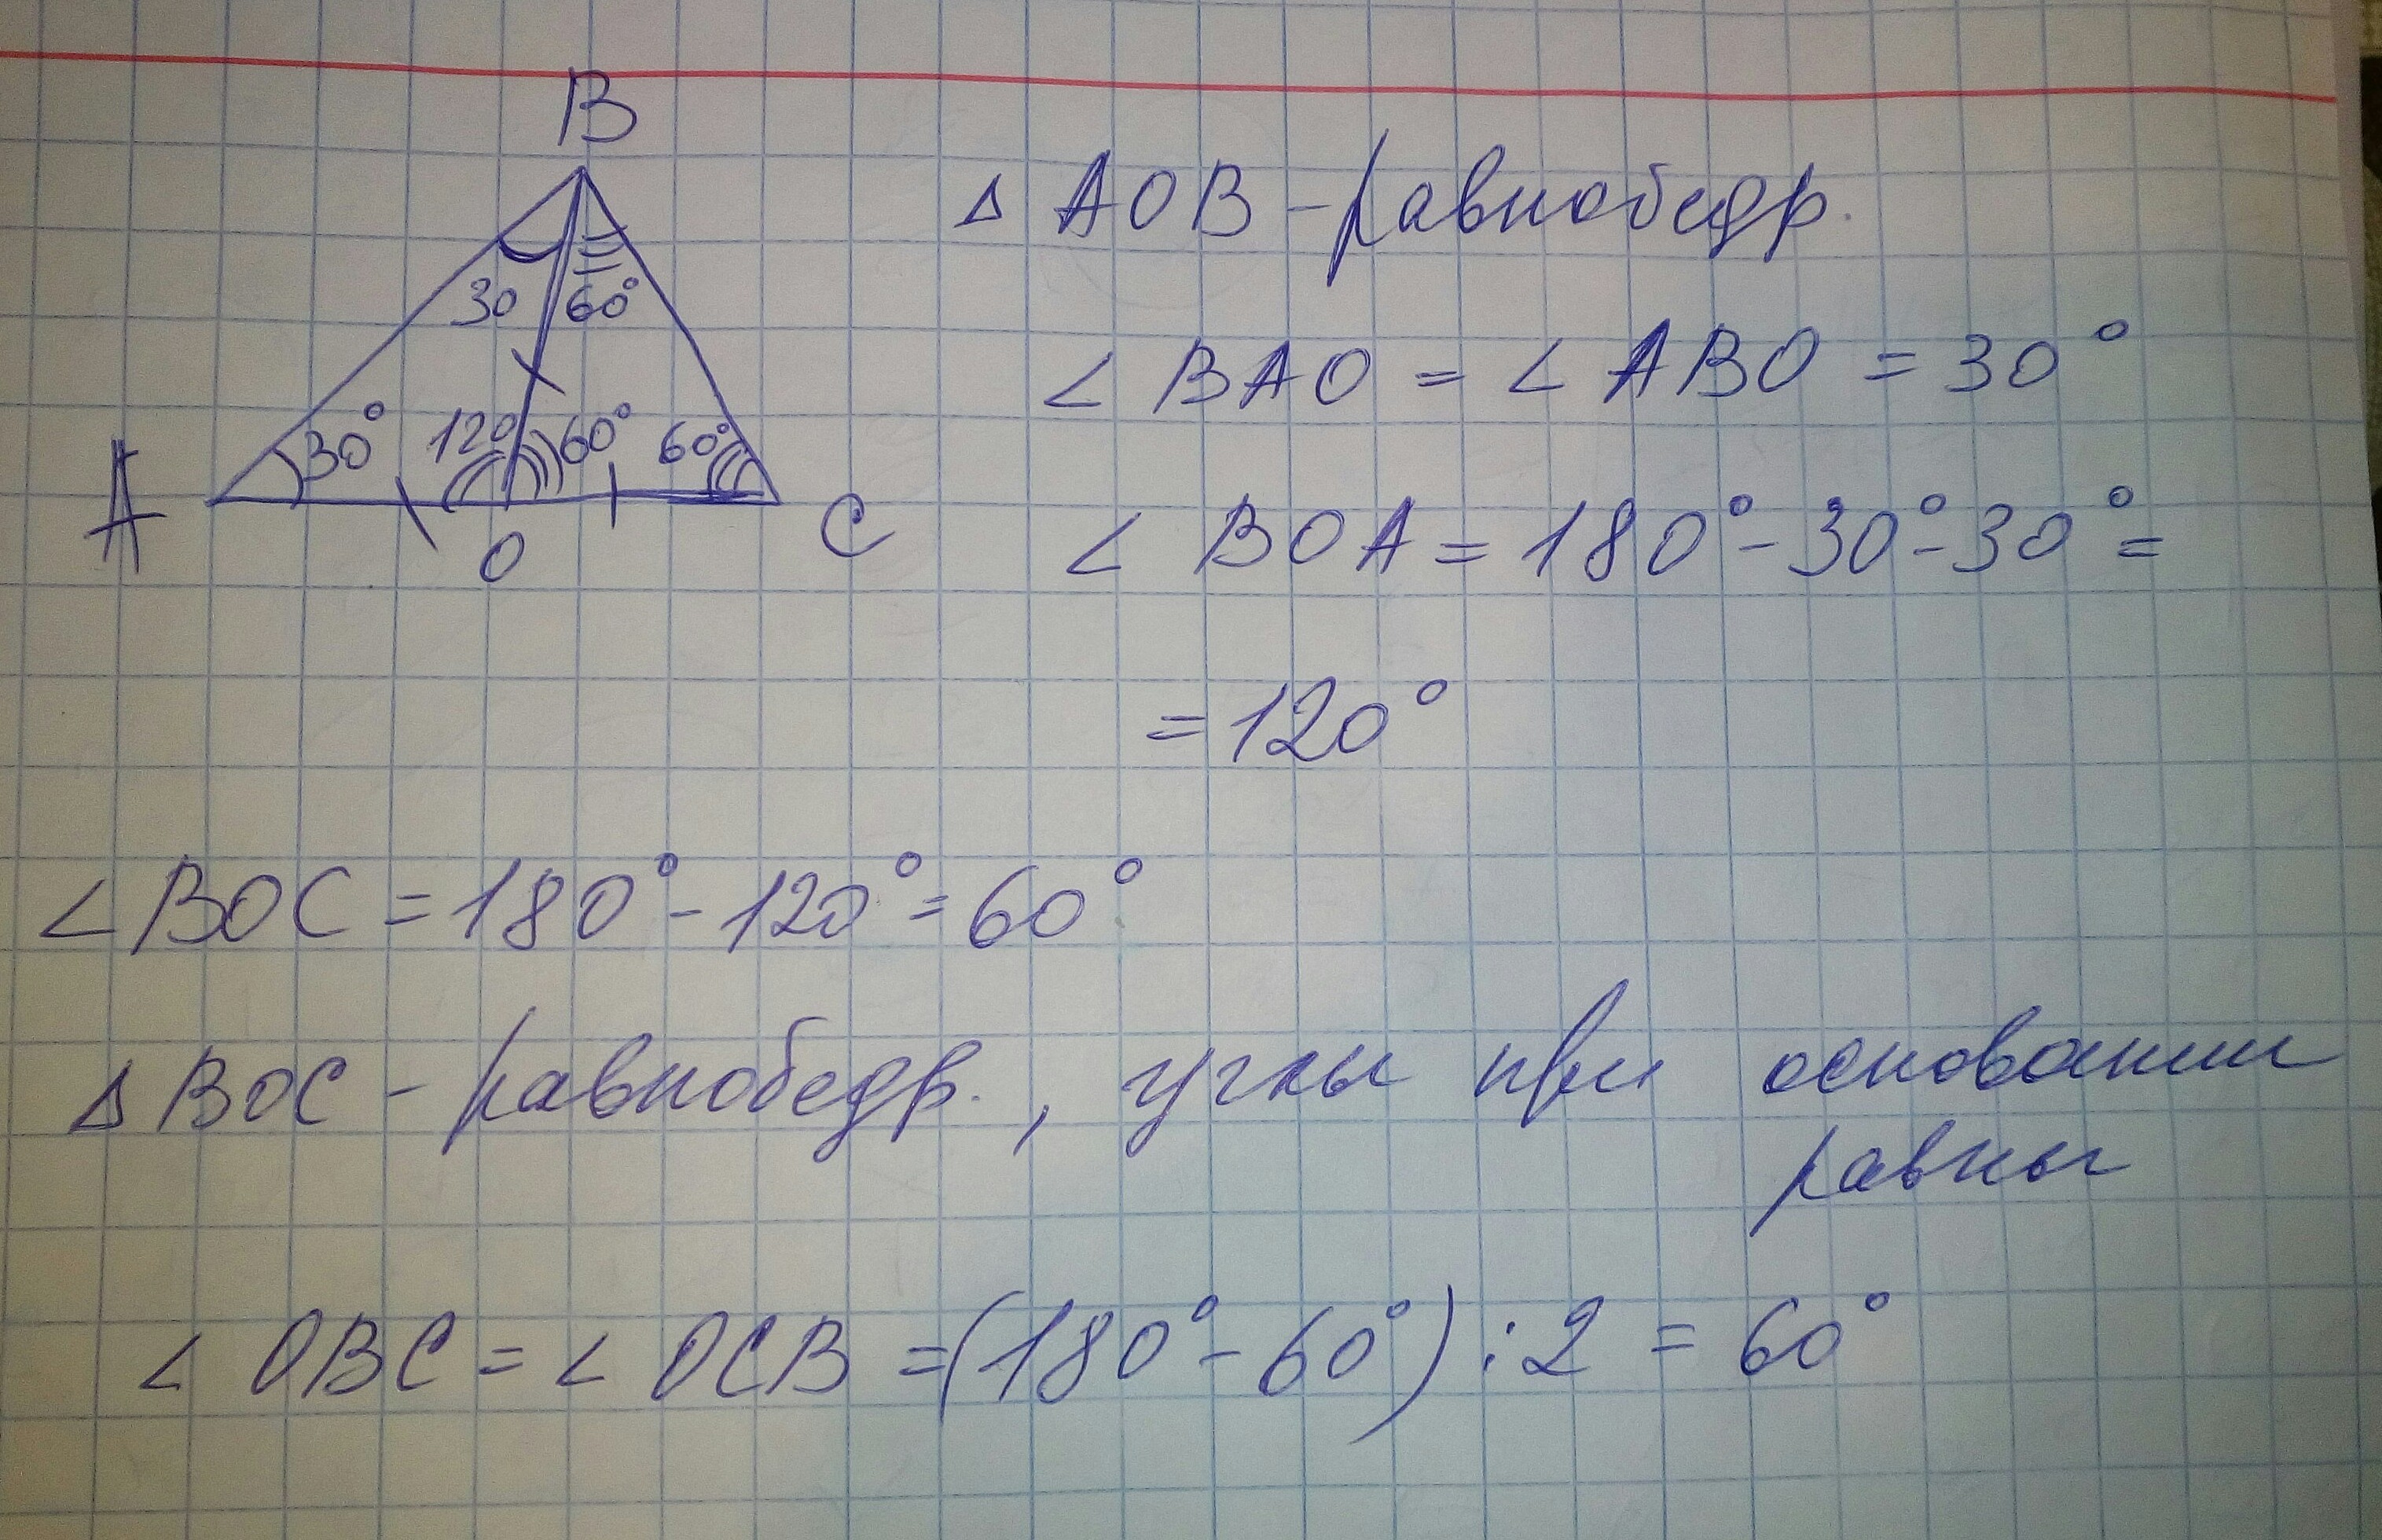 B
30 60°
30° 120 60° 60°
A O C
Δ AOB - равнобедр.
∠ BAO = ∠ ABO = 30°
∠ BOA = 180° - 30° - 30° =
= 120°
∠ BOC = 180° - 120° = 60°
Δ BOC - равнобедр., углы при основании
равны
∠ OBC = ∠ OCB = (180° - 60°) : 2 = 60°